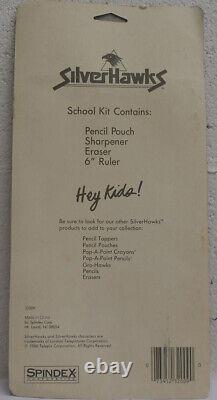 SilverHawks
School Kit Contains:
Pencil Pouch
Sharpener
Eraser
6" Ruler
Hey Kids!
Be sure to look for our other SilverHawks™
products to add to your collection:
Pencil Toppers
Pencil Pouches
Pop-A-Point Crayons
Pop-A-Point Pencils
Gro-Hawks
Pencils
Erasers
Made in China
for Spindex Corp.
Mt. Laurel, NJ 08054
SilverHawks and SilverHawks characters are
trademarks of Lorimar Telepictures Corporation.
© 1986 Telepix Corporation. All Rights Reserved.
SPINDEX